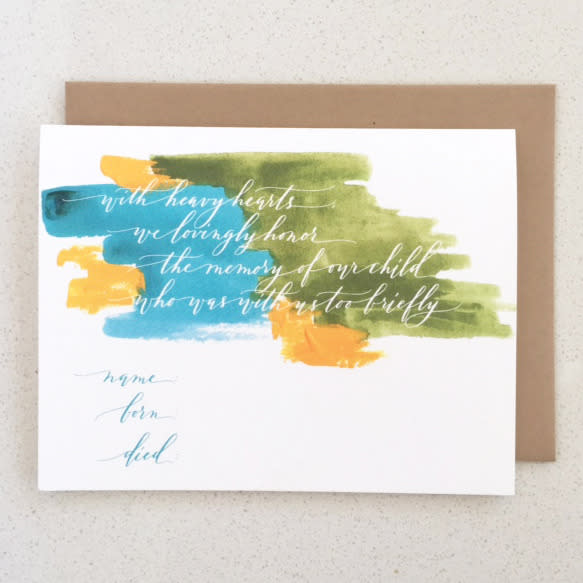 with heavy hearts
we lovingly honor
the memory of our child
who was with us too briefly
name
born
died